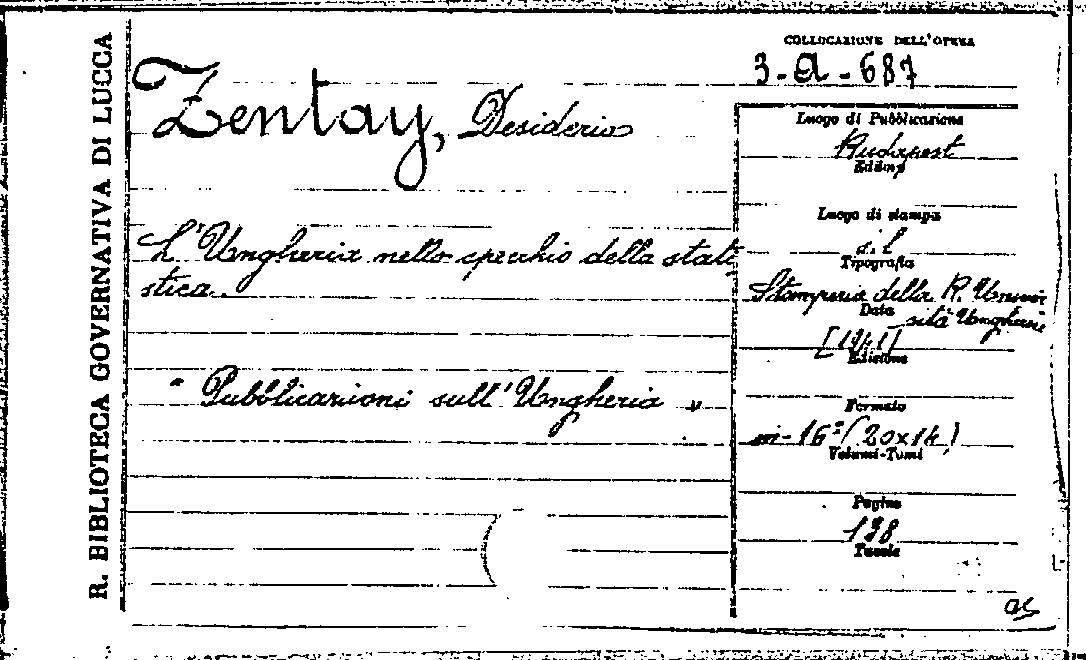 R. BIBLIOTECA GOVERNATIVA DI LUCCA
Zentay, Desiderio
L'Ungheria nello specchio della stati
stica.
" Pubblicazioni sull'Ungheria "
COLLOCAZIONE DELL'OPERA
3-a-687
Luogo di Pubblicazione
Budapest
Editore
Luogo di stampa
s.l
Tipografia
Stamperia della R. Univer
Data
sità Ungherese
[1941]
Edizione
Formato
in-16° (20x14)
Volumi-Tomi
Pagine
138
Tavole